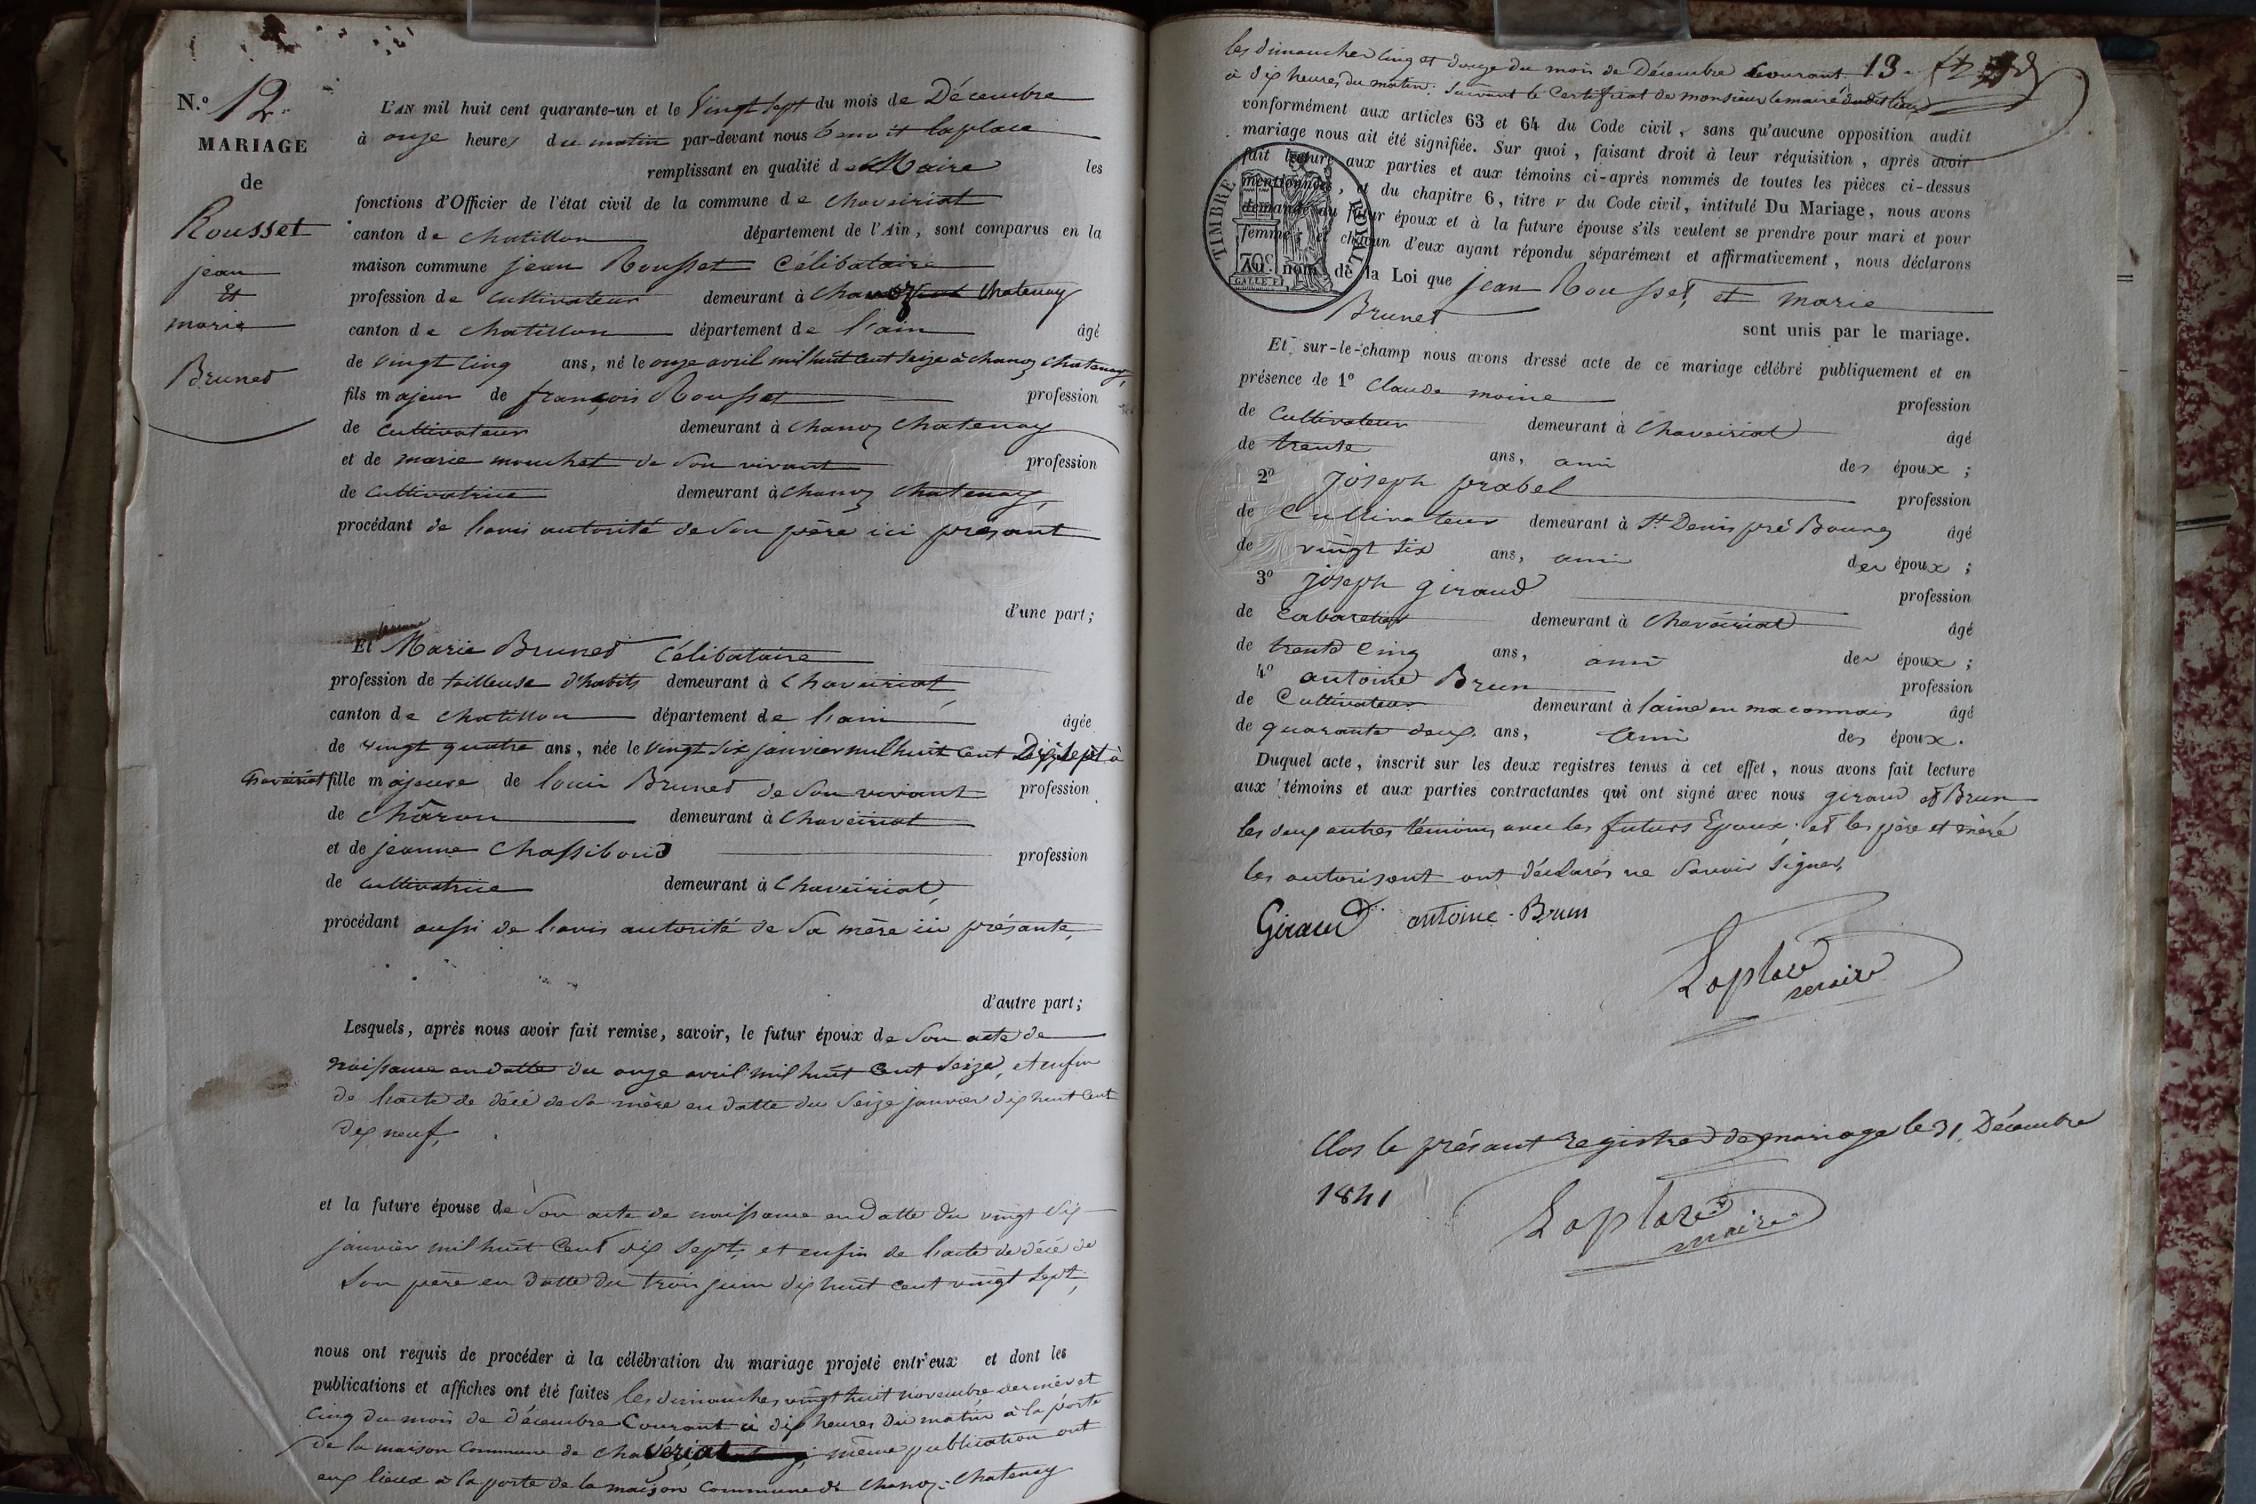 N.º 12.
MARIAGE
de
Rousset
jean
Et
marie
Brunet
L'AN mil huit cent quarante-un et le Vingt sept du mois de Décembre
à onze heures du matin par-devant nous Benoit Laplace
remplissant en qualité de Maire les
fonctions d'Officier de l'état civil de la commune de Chaveiriat
canton de Chatillon département de l'Ain, sont comparus en la
maison commune jean Rousset Célibataire
profession de cultivateur demeurant à Chanoz Chatenay
canton de Chatillon département de l'ain âgé
de vingt cinq ans, né le onze avril mil huit cent seize à chanoz Chatenay,
fils majeur de françois Rousset profession
de cultivateur demeurant à Chanoz Chatenay
et de marie mouchet de son vivant profession
de cultivatrice demeurant à chanoz chatenay,
procédant de l'avis autorité de son père ici présant
d'une part;
Et jeanne Marie Brunet Célibataire
profession de tailleuse d'habits demeurant à Chaveiriat,
canton de chatillon département de l'ain âgée
de vingt quatre ans, née le vingt six janvier mil huit cent Dix sept à
Chaveiriat fille majeure de louis Brunet de son vivant profession
de Châron demeurant à Chaveiriat
et de jeanne Chassiboud profession
de cultivatrice demeurant à Chaveiriat,
procédant aussi de l'avis autorité de sa mère ici présante,
d'autre part;
Lesquels, après nous avoir fait remise, savoir, le futur époux de son acte de
naissance en datte du onze avril mil huit cent seize, et enfin
de l'acte de décé de sa mère en datte du seize janvier dix huit cent
dix neuf,
et la future épouse de son acte de naissance en datte du vingt six
janvier mil huit cent dix sept, et enfin de l'acte de décé de
son père en datte du trois juin dix huit cent vingt sept,
nous ont requis de procéder à la célébration du mariage projeté entr'eux et dont les
publications et affiches ont été faites les dimanches vingt huit novembre dernier et
cinq du mois de décembre Courant à dix heures du matin à la porte
de la maison commune de chavériat, même publication ont
eux lieux à la porte de la maison commune de Chanoz-Chatenay
les dimanches cinq et douze du mois de Décembre Courant. 13.
à dix heures du matin. suivant le Certificat de monsieur le maire dudit lieu
conformément aux articles 63 et 64 du Code civil, sans qu'aucune opposition audit
mariage nous ait été signifiée. Sur quoi, faisant droit à leur réquisition, après avoir
fait lecture aux parties et aux témoins ci-après nommés de toutes les pièces ci-dessus
mentionnées, et du chapitre 6, titre v du Code civil, intitulé Du Mariage, nous avons
demandé au futur époux et à la future épouse s'ils veulent se prendre pour mari et pour
femme; et chacun d'eux ayant répondu séparément et affirmativement, nous déclarons
au nom de la Loi que jean Rousset et marie
Brunet
sont unis par le mariage.
TIMBRE ROYAL
70c.
Et sur-le-champ nous avons dressé acte de ce mariage célébré publiquement et en
présence de 1º Claude moine profession
de Cultivateur demeurant à Chaveiriat âgé
de trente ans, ami des époux;
2º joseph prabel profession
de Cultivateur demeurant à St Denis pré Bourg âgé
de vingt six ans, ami des époux;
3º joseph giraud profession
de Cabaretier demeurant à Chaveiriat âgé
de trente cinq ans, ami des époux;
4º antoine Brun profession
de Cultivateur demeurant à laine en maconnais âgé
de quarante deux ans, ami des époux.
Duquel acte, inscrit sur les deux registres tenus à cet effet, nous avons fait lecture
aux témoins et aux parties contractantes qui ont signé avec nous giraud et Brun
les deux autres témoins avec les futurs Epoux. et les père et mère
les autorisant ont déclarés ne savoir signer,
Giraud antoine Brun
Laplace
maire
Clos le présant registre de mariage le 31 Décembre
1841
Laplace
maire